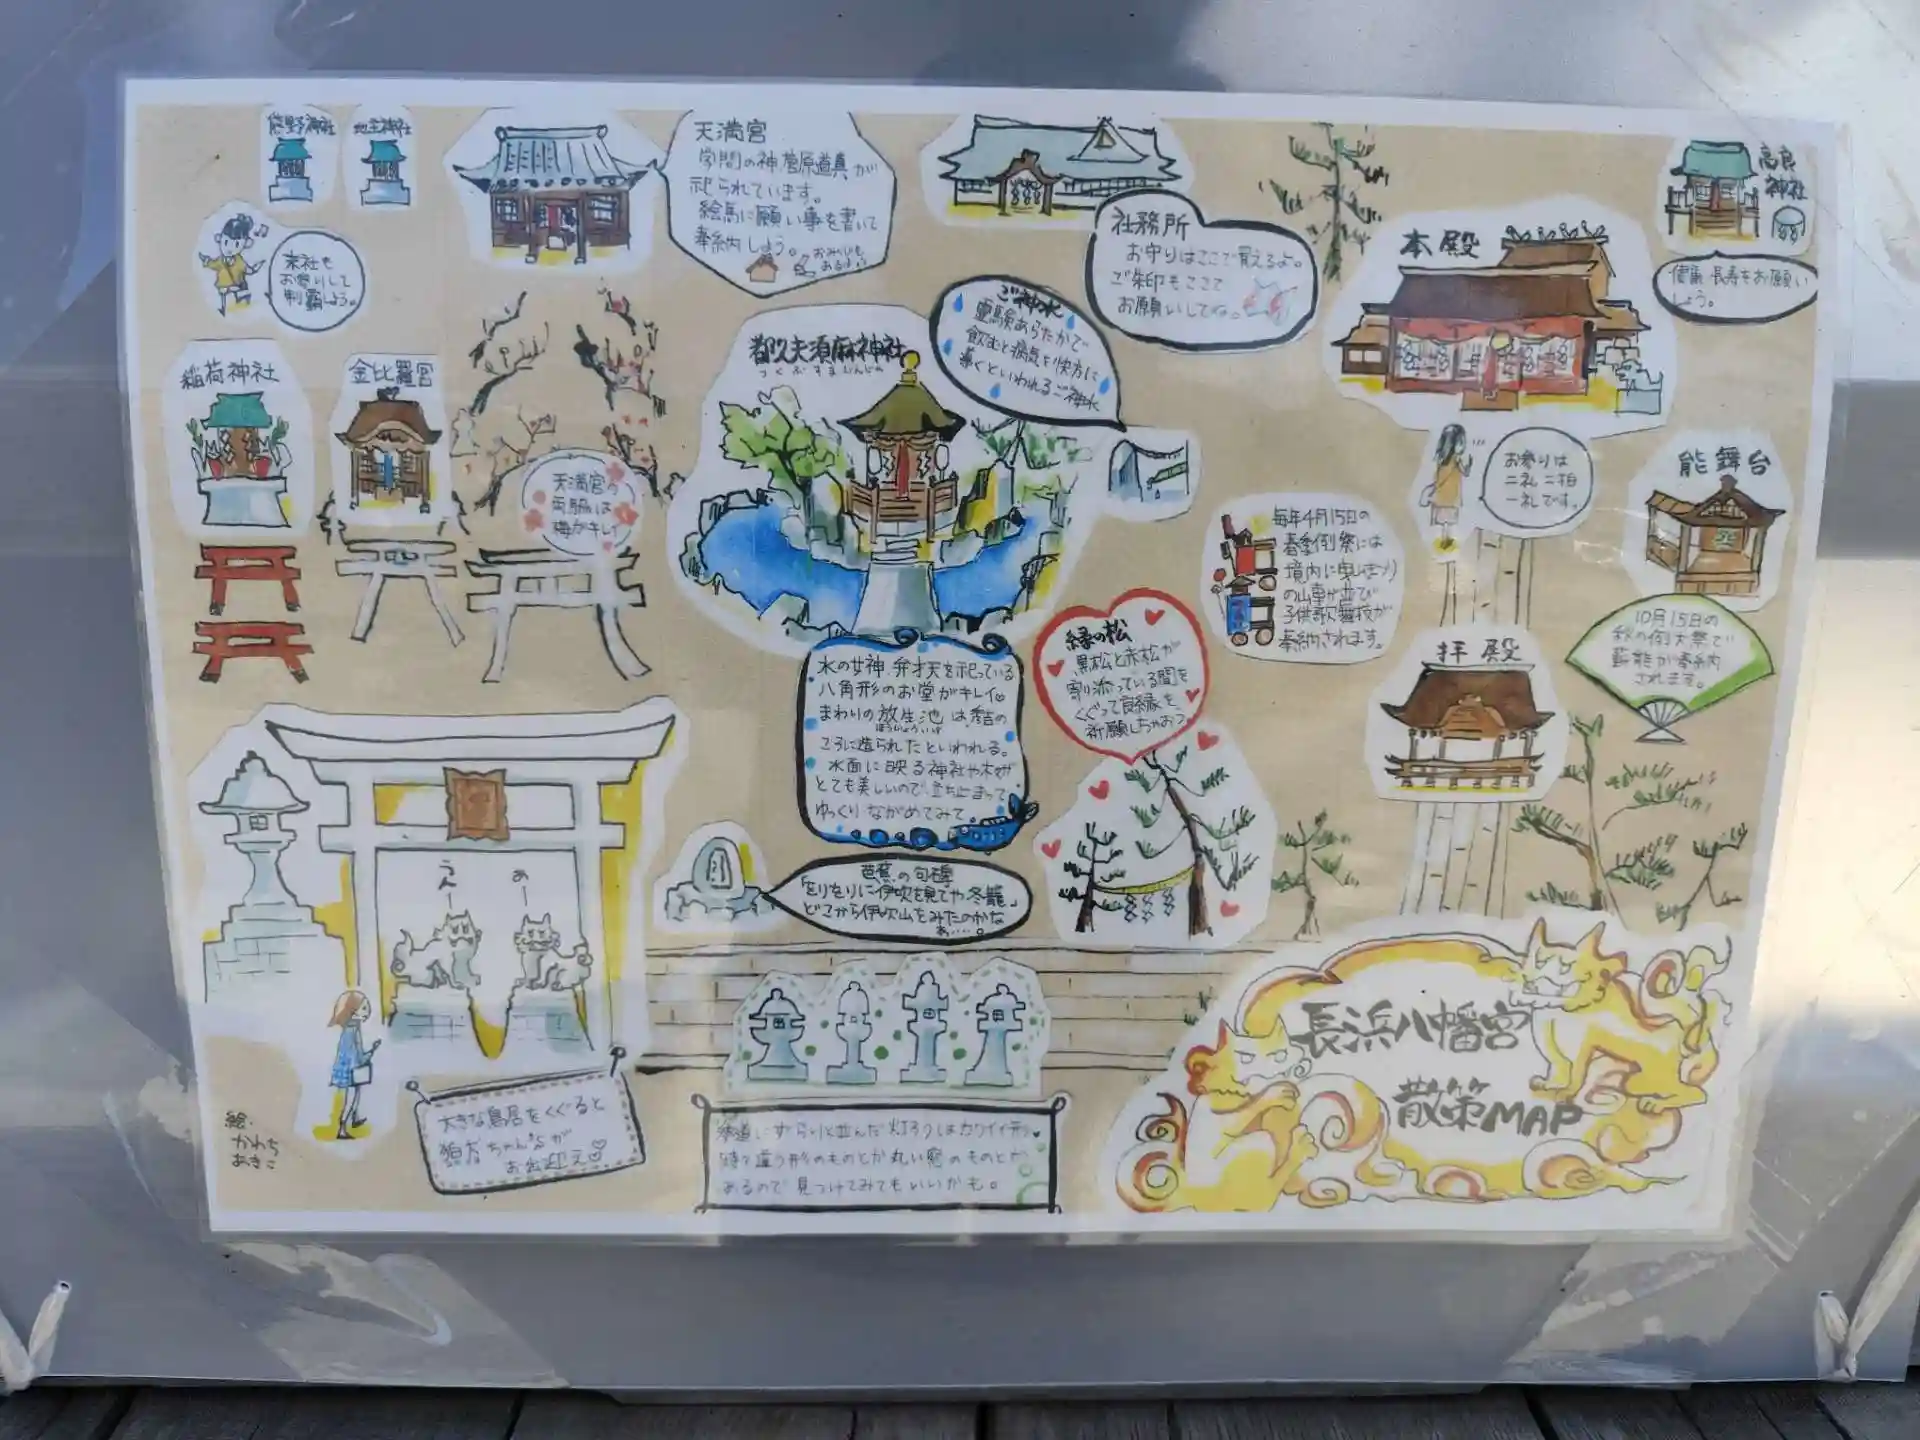 熊野神社
地主神社
天満宮
学問の神 菅原道真が
祀られています。
絵馬に願い事を書いて
奉納しよう。
おみくじも
あるよ
末社も
お参りして
制覇しよう。
社務所
お守りはここで買えるよ。
ご朱印もここで
お願いしてね。
高良
神社
健康 長寿をお願い
しよう。
本殿
ご神水
霊験あらたかで
飲むと病気を快方に
導くといわれるご神水
都久夫須麻神社
つくぶすまじんじゃ
稲荷神社
金比羅宮
天満宮の
両脇は
梅がキレイ
お参りは
二礼二拍
一礼です。
能舞台
毎年4月15日の
春季例祭には
境内に曳山まつり
の山車が並び
子供歌舞伎が
奉納されます。
10月15日の
秋の例大祭で
藝能が奉納
されます。
縁の松
黒松と赤松が
寄り添っている間を
くぐって良縁を
祈願しちゃおう
拝殿
水の女神 弁才天を祀っている
八角形のお堂がキレイ。
まわりの放生池は、秀吉の
ほうじょういけ
ころに造られたといわれる。
水面に映る神社や木々が
とても美しいので 立ち止まって
ゆっくりながめてみて
芭蕉の句碑
「をりをりに伊吹を見てや冬籠」
どこから伊吹山をみたのかな
ぁ…。
えー
あー
大きな鳥居をくぐると
狛犬ちゃんズが
お出迎え♡
参道にずらりと並んだ灯ろうはカワイイデス
時々違う形のものとか丸い窓のものとか
あるので 見つけてみてもいいかも。
長浜八幡宮
散策MAP
絵・
かわち
あきこ